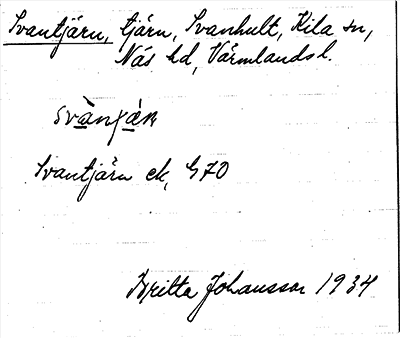 Svantjärn, tjärn, Svanhult, Kila sn,
Näs hd, Värmlands l.
Svantjärn ek, G70
Britta Johansson 1934